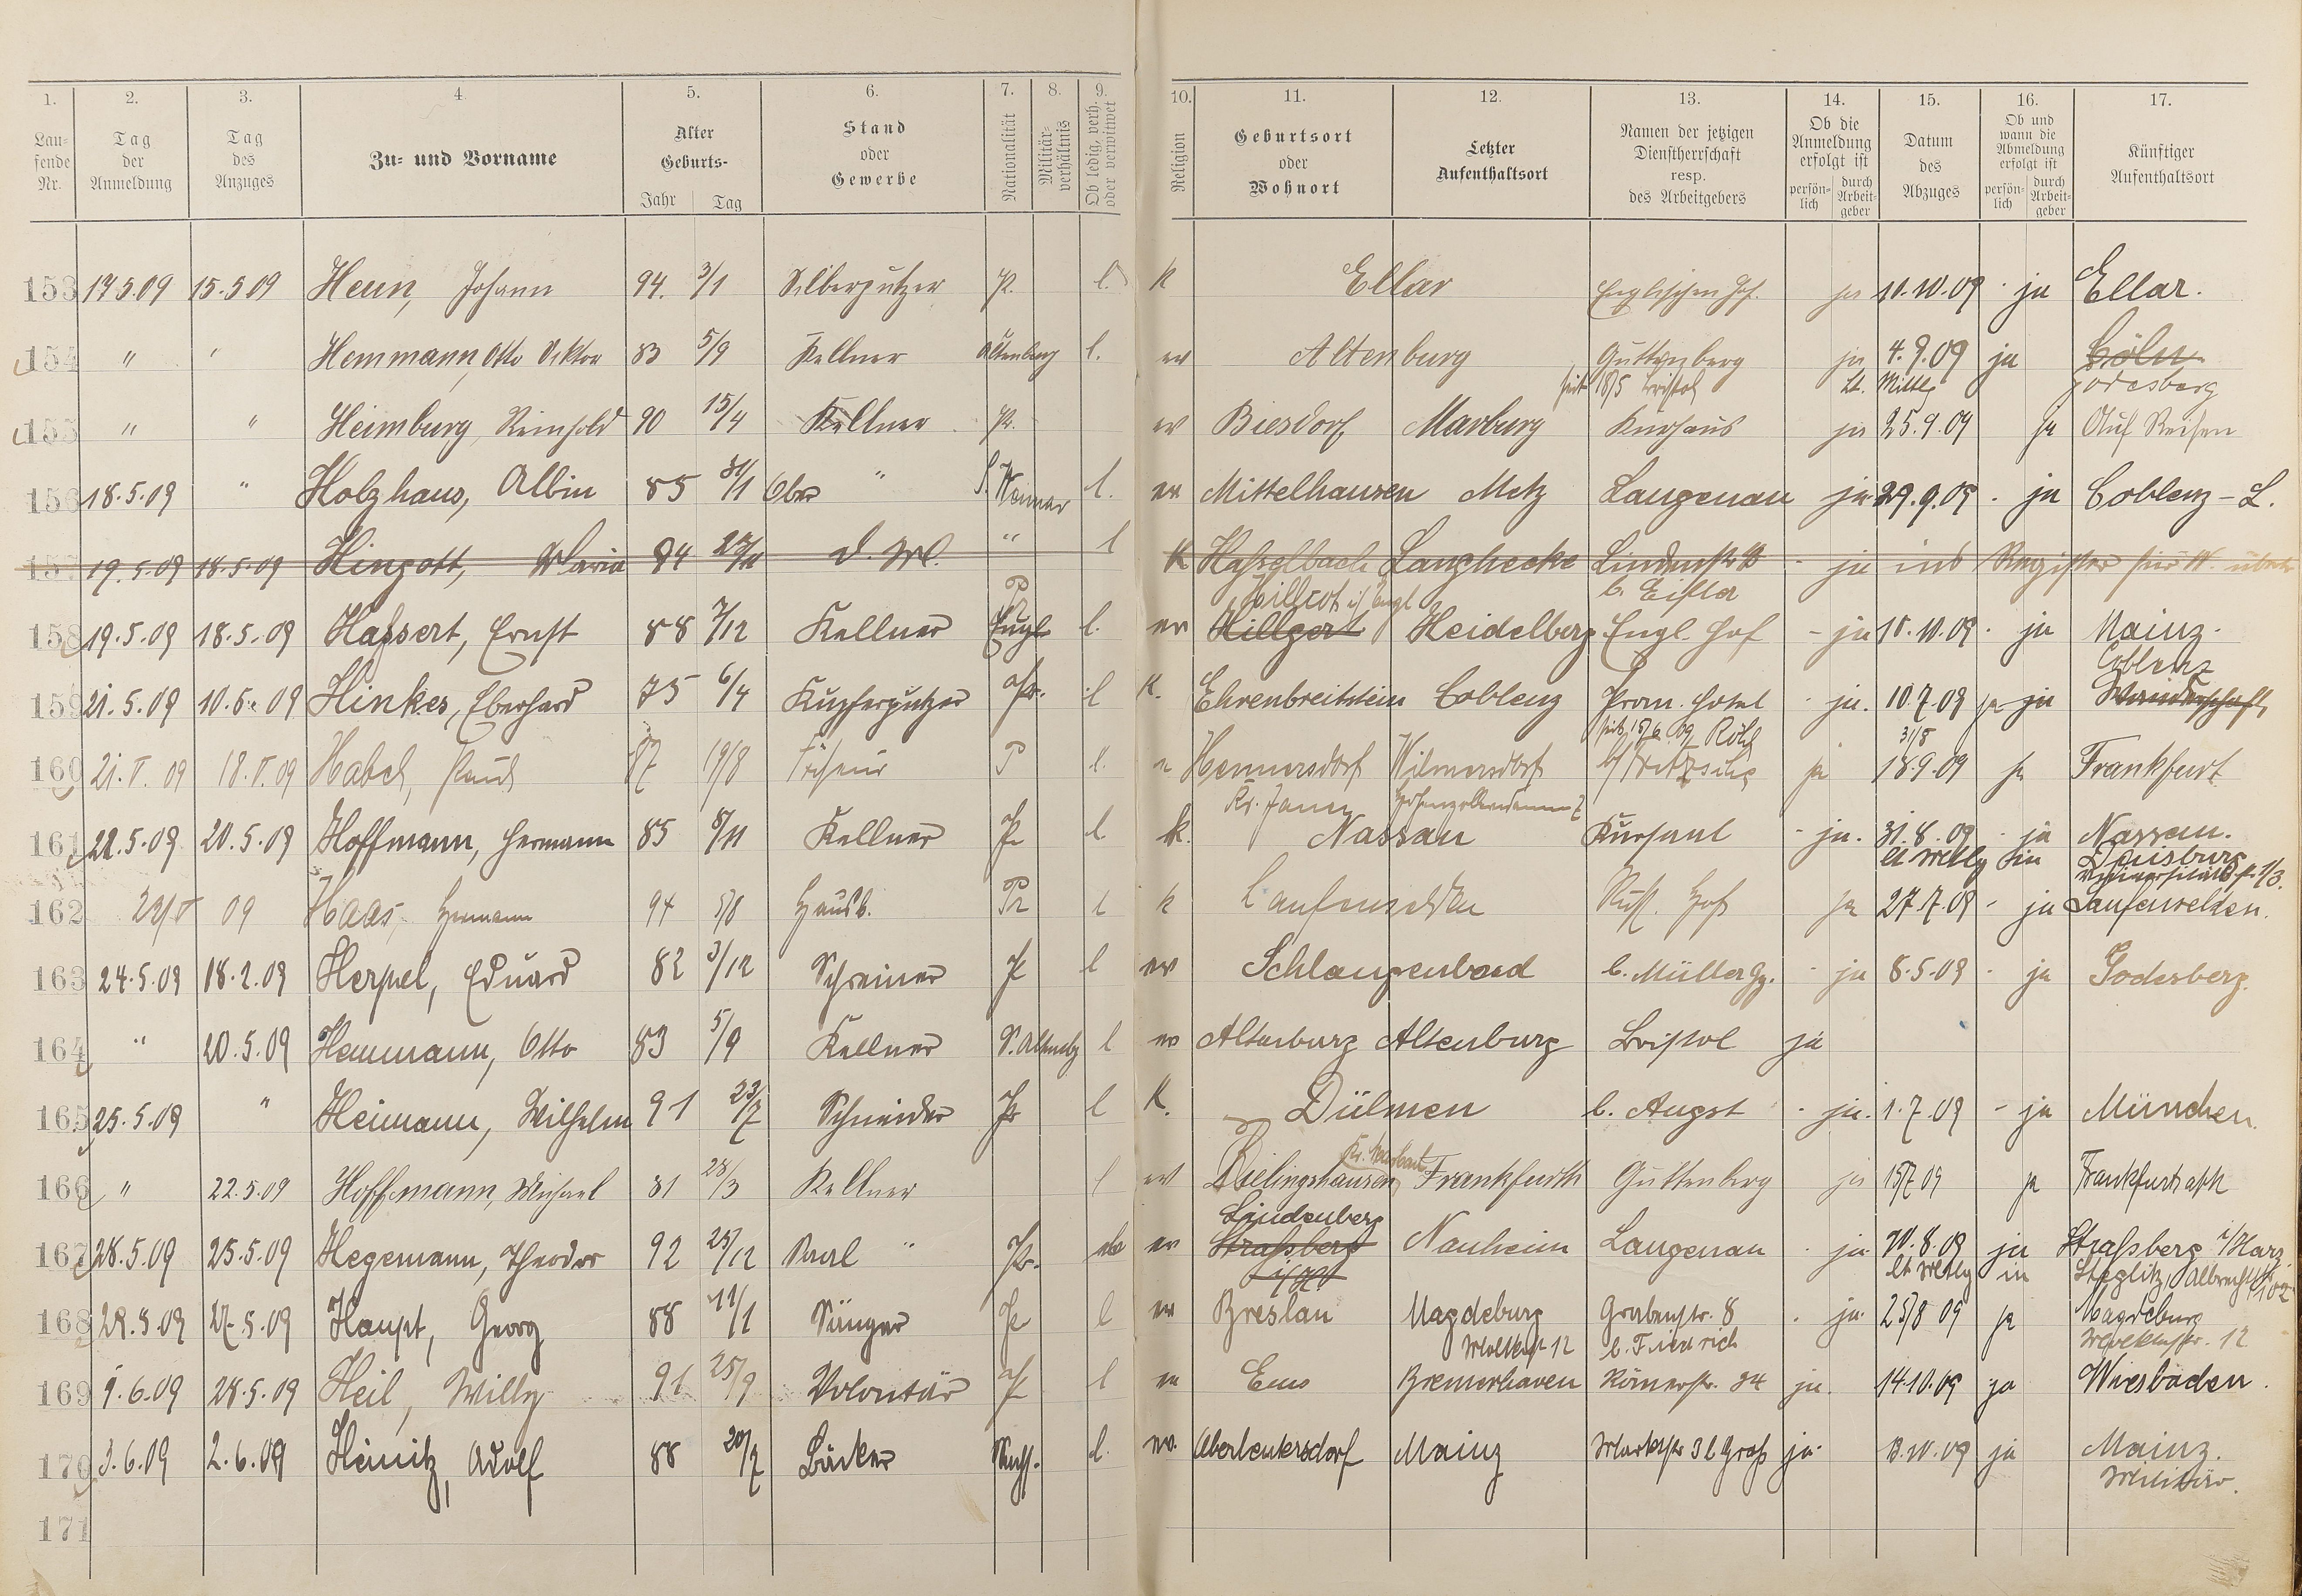 1. 2. 3. 4. 5. 6. 7. 8. 9. 10. 11. 12. 13. 14. 15. 16. 17.
Lau-
fende
Nr.
Tag
der
Anmeldung
Tag
des
Anzuges
Zu- und Vorname
Alter
Geburts-
Jahr Tag
Stand
oder
Gewerbe
Nationalität
Militär-
verhältnis
Ob ledig, verh.
oder verwitwet
Religion
Geburtsort
oder
Wohnort
Letzter
Aufenthaltsort
Namen der jetzigen
Dienstherrschaft
resp.
des Arbeitgebers
Ob die
Anmeldung
erfolgt ist
persön-
lich
durch
Arbeit-
geber
Datum
des
Abzuges
Ob und
wann die
Abmeldung
erfolgt ist
persön-
lich
durch
Arbeit-
geber
Künftiger
Aufenthaltsort
153 15.5.09 Henn, Johann 94. 3/1 Silberputzer Pr. l. k Ellar Englischen Hof ja 10.10.09 ja Ellar.
154 " " Hemmann, Otto Viktor 83 5/9 Kellner Altenburg l. ev Altenburg Guttenberg ja 4.9.09 ja Cöln
seit 18/5 Bristol lt. Mittlg Godesberg
155 " " Heimburg, Reinhold 90 15/4 Kellner Pr. ev Biesdorf Marburg Kurhaus ja 25.9.09 ja Auf Reisen
156 18.5.09 " Holzhaus, Albin 85 31/1 Ober " S. Weimar l. ev Mittelhausen Metz Langenau ja 29.9.09 ja Coblenz-L.
157 19.5.09 18.5.09 Hingott, Maria 84 d. M. " l K Hasselbach Langhecke ja ins Register für W.
b. Eifler
158 19.5.09 18.5.09 Hassert, Ernst 88 7/12 Kellner Engl. Pr l. ev Hillgert Heidelberg Engl. Hof ja 10.10.09 ja Mainz.
Coblenz
159 21.5.09 10.5.09 Hinkes, Eberhard 75 6/4 Kupferputzer Pr. l K. Ehrenbreitstein Coblenz Prom. Hotel ja. 10.7.09 ja ja Wanderschaft
31/8
160 21.V.09 18.V.09 Habel, Paul 87 19/8 Friseur P l. Hennersdorf Wilmersdorf b/ Fritzsche ja 18.9.09 ja Frankfurt
Kr. Jauer Hohenzollerndamm
161 22.5.09 20.5.09 Hoffmann, Hermann 85 8/11 Kellner Pr l k. Nassau Kursaal ja. 31.8.09 ja Nassau.
lt Mttlg in Duisburg
162 23/V 09 Haas, Hermann 94 5/8 Hausb. Pr l k Laufenselden Russ. Hof ja 27.7.09 ja Laufenselden.
163 24.5.09 18.2.09 Herpel, Eduard 82 3/12 Schreiner Pr l ev Schlangenbad b. Müller Gg. ja 8.5.09 ja Godesberg.
164 " 20.5.09 Hemmann, Otto 83 5/9 Kellner S. Altenbg l ev Altenburg Altenburg Bristol ja
165 25.5.09 " Heimann, Wilhelm 91 23/7 Schneider Pr l K. Dülmen b. Augst ja. 1.7.09 ja München.
166 " 22.5.09 Hoffmann, Michael 81 28/3 Kellner l ev Bielingshausen Frankfurth Guttenberg ja 15/7 09 ja Frankfurt a/M
Lindenberg
167 28.5.09 25.5.09 Hegemann, Theodor 92 25/12 Saal " Pr. ev Strassberg Nauheim Langenau ja. 20.8.09 ja Strassberg i/Harz
i/H lt Mttlg in Steglitz, Albrechtstr 102
168 29.5.09 27.5.09 Haupt, Georg 88 11/1 Sänger Pr l ev Breslau Magdeburg Grabenstr. 8 ja 25/8 09 ja Magdeburg
Moltkestr 12 b. Friedrich Moltkestr. 12
169 1.6.09 28.5.09 Heil, Willy 91 25/9 Volontär Pr l ev Ems Bremerhaven Römerstr. 34 ja. 14.10.09 ja Wiesbaden.
170 3.6.09 2.6.09 Heinitz, Adolf 88 20/7 Bäcker Sachs. l. ev. Oberleutersdorf Mainz Marktstr 3 b Gross ja. 13.10.09 ja Mainz.
Militär.
171